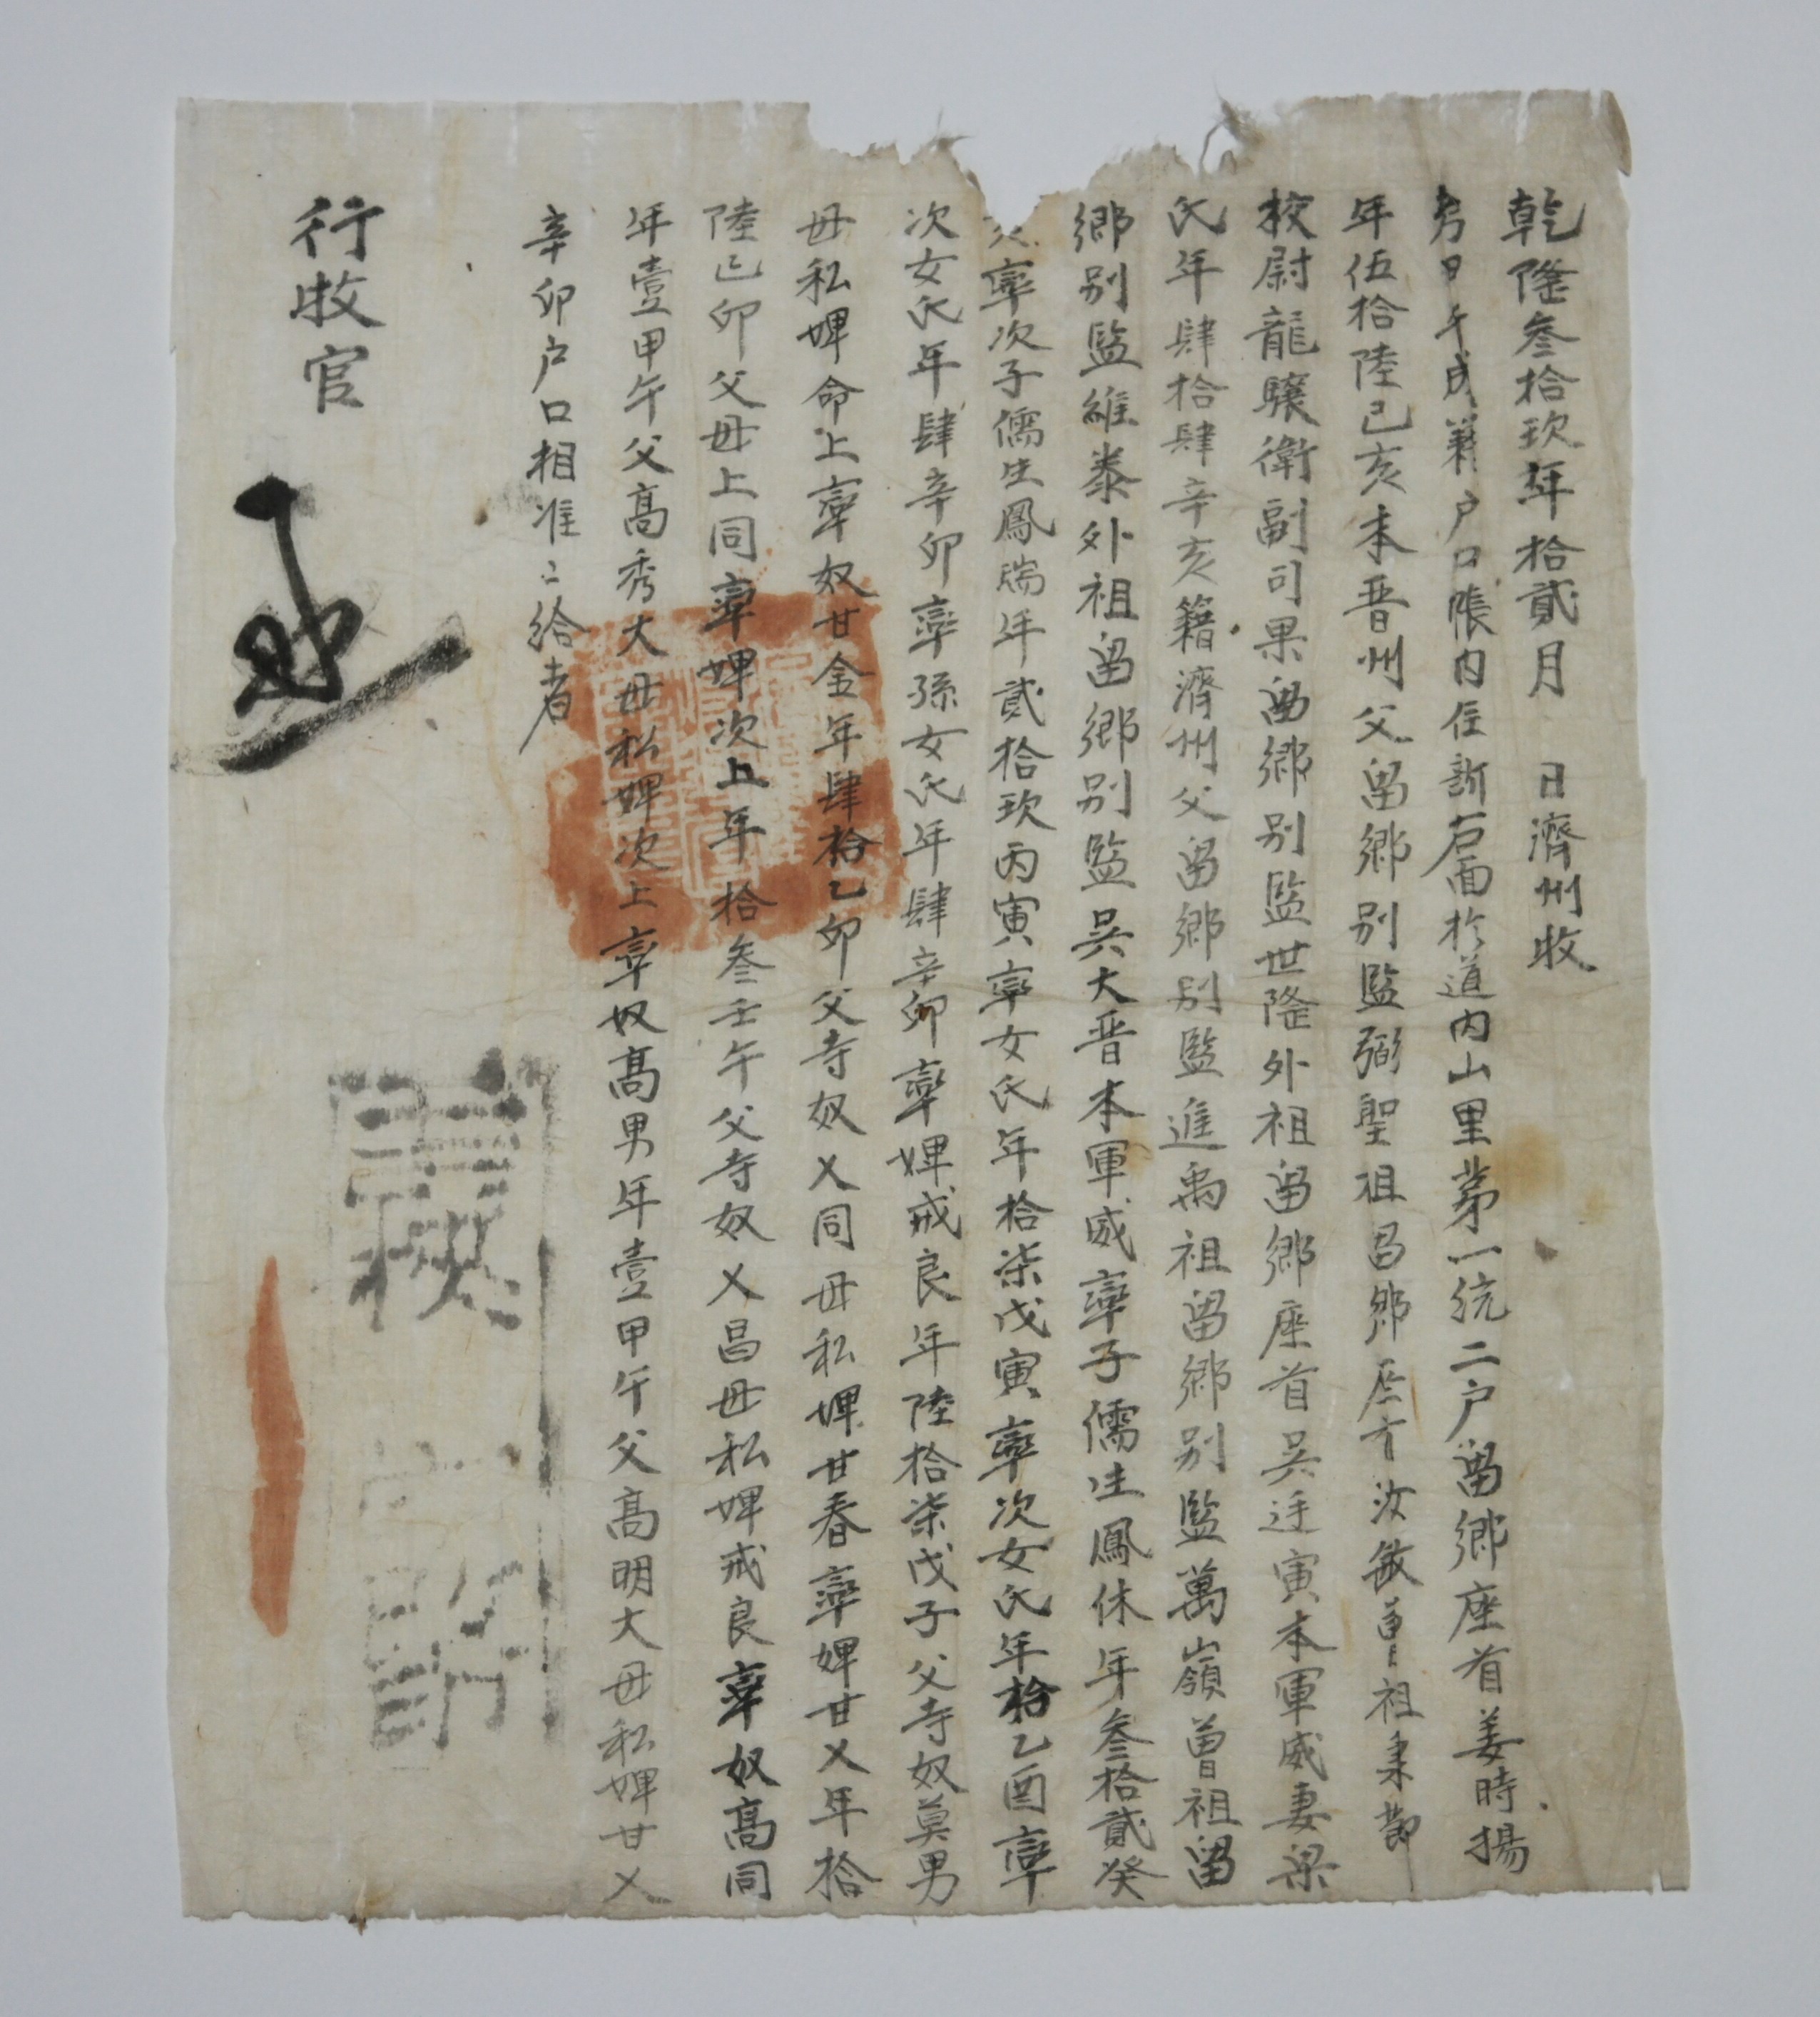 乾隆叁拾玖年拾貳月 日濟州牧
考日午成籍户口帳内住訴右面於道内山里第一統二户留鄉座首姜時揚
年伍拾陸己亥本晋州父留鄉别監弼聖祖留鄉座首汝敏曾祖秉節
校尉龍驤衛副司果留鄉别監世隆外祖留鄉座首吳廷寅本軍威妻梁
氏年肆拾肆辛亥籍濟州父留鄉别監進禹祖留鄉别監萬嶺曾祖留
鄉别監維泰外祖留鄉别監吳大晋本軍威率子儒生鳳休年叁拾貳癸
亥率次子儒生鳳瑞年貳拾玖丙寅率女氏年拾柒戊寅率次女氏年拾乙酉率
次女氏年肆辛卯率孫女氏年肆辛卯率婢戒良年陸拾柒戊子父寺奴莫男
母私婢命上率奴甘金年肆拾乙卯父寺奴乂同母私婢甘春率婢甘乂年拾
陸己卯父母上同率婢次上年拾叁壬午父寺奴乂昌母私婢戒良率奴高同
年壹甲午父高秀大母私婢次上率奴高男年壹甲午父高明大母私婢甘乂
辛卯户口相准々給者
行牧官